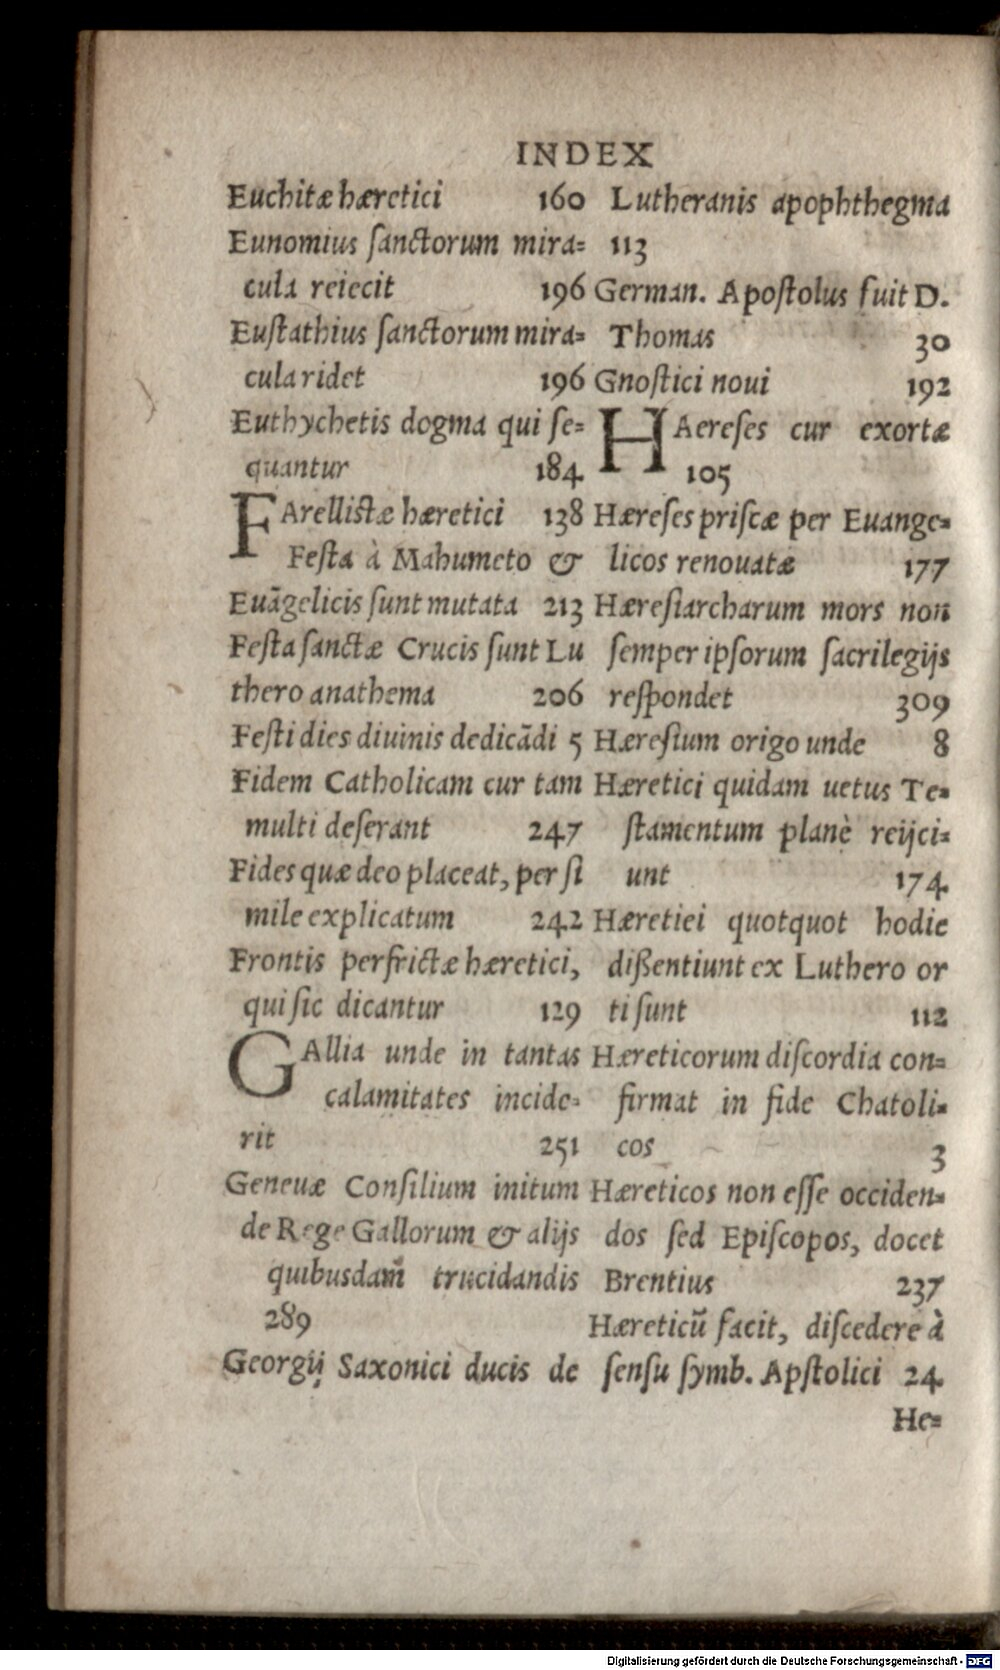 INDEX
Euchitæ hæretici 160
Eunomius ſanctorum mira=
cula reiecit 196
Euſtathius ſanctorum mira=
cula ridet 196
Euthychetis dogma qui ſe=
quantur 184
FArelliſtæ hæretici 138
Feſta à Mahumeto &
Euãgelicis ſunt mutata 213
Feſta ſanctæ Crucis ſunt Lu
thero anathema 206
Feſti dies diuinis dedicãdi 5
Fidem Catholicam cur tam
multi deſerant 247
Fides quæ deo placeat, per ſi
mile explicatum 242
Frontis perfrictæ hæretici,
qui ſic dicantur 129
GAllia unde in tantas
calamitates incide=
rit 251
Geneuæ Conſilium initum
de Rege Gallorum & alijs
quibusdam̃ trucidandis
289
Georgij Saxonici ducis de
Lutheranis apophthegma
113
German. Apoſtolus fuit D.
Thomas 30
Gnoſtici noui 192
HAereſes cur exortæ
105
Hæreſes priſcæ per Euange=
licos renouatæ 177
Hæreſiarcharum mors non
ſemper ipſorum ſacrilegijs
reſpondet 309
Hæreſium origo unde 8
Hæretici quidam uetus Te=
ſtamentum planè reijci=
unt 174
Hæretiei quotquot hodie
dißentiunt ex Luthero or
ti ſunt 112
Hæreticorum diſcordia con=
firmat in fide Chatoli=
cos 3
Hæreticos non eſſe occiden=
dos ſed Epiſcopos, docet
Brentius 237
Hæreticũ facit, diſcedere à
ſenſu ſymb. Apſtolici 24
He=
Digitalisierung gefördert durch die Deutsche Forschungsgemeinschaft - DFG